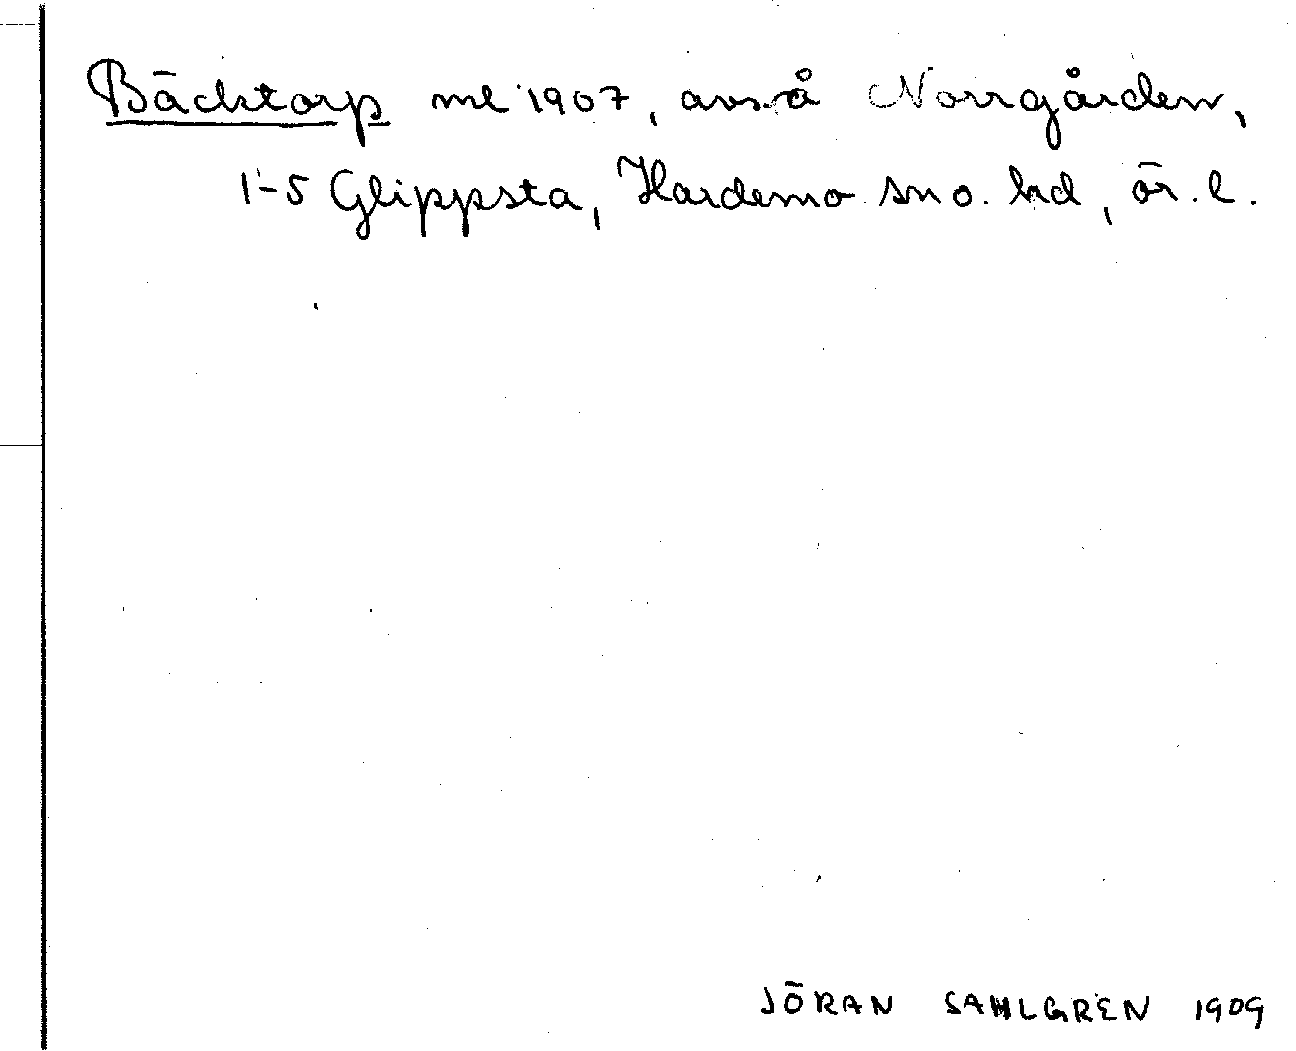 Bäcktorp ml 1907, avs. å Norrgården,
1-5 Glippsta, Hardemo sn o. hd, ör. l.
JÖRAN SAHLGREN 1909